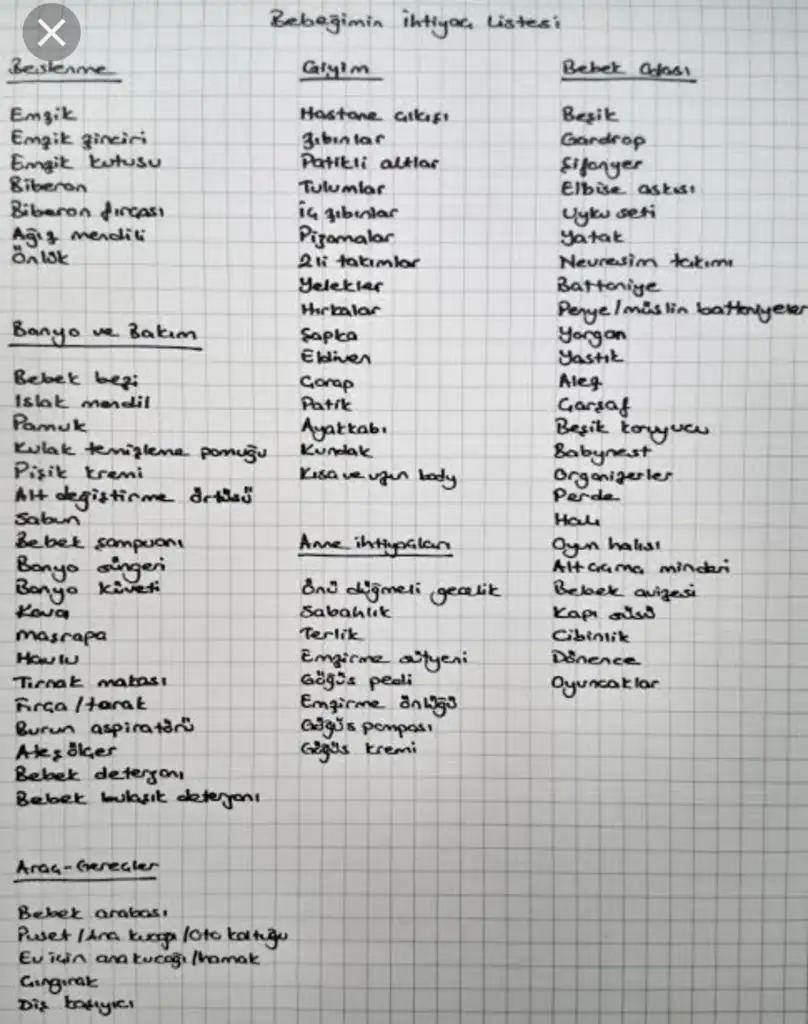 Bebeğimin ihtiyaç Listesi
Beslenme
Emzik
Emzik zinciri
Emzik kutusu
Biberon
Biberon fırçası
Ağız mendili
Önlük
Banyo ve Bakım
Bebek bezi
Islak mendil
Pamuk
Kulak temizleme pamuğu
Pişik kremi
Alt değiştirme örtüsü
Sabun
Bebek şampuanı
Banyo süngeri
Banyo küveti
Kova
Maşrapa
Havlu
Tırnak makası
Fırça/tarak
Burun aspiratörü
Ateş ölçer
Bebek deterjanı
Bebek bulaşık deterjanı
Araç-Gereçler
Bebek arabası
Puset/Ana kucağı/Oto koltuğu
Ev için ana kucağı/hamak
Çıngırak
Diş kaşıyıcı
Giyim
Hastane çıkışı
Zıbınlar
Patikli altlar
Tulumlar
İç zıbınlar
Pijamalar
2li takımlar
Yelekler
Hırkalar
Şapka
Eldiven
Çorap
Patik
Ayakkabı
Kundak
Kısa ve uzun body
Anne ihtiyaçları
Önü düğmeli gecelik
Sabahlık
Terlik
Emzirme sütyeni
Göğüs pedi
Emzirme önlüğü
Göğüs pompası
Göğüs kremi
Bebek Odası
Beşik
Gardrop
Şifonyer
Elbise askısı
Uyku seti
Yatak
Nevresim takımı
Battaniye
Penye/müslin battaniyeler
Yorgan
Yastık
Alez
Çarşaf
Beşik koruyucu
Babynest
Organizerler
Perde
Halı
Oyun halısı
Alt açma minderi
Bebek avizesi
Kapı süsü
Cibinlik
Dönence
Oyuncaklar